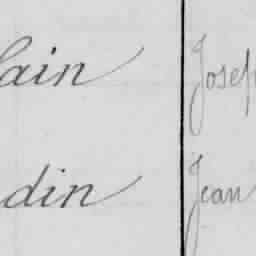 lain Josep
din Jean